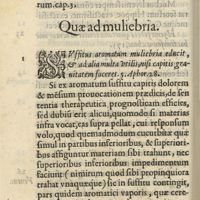 rum.cap.3.
Quæ ad muliebria.
1
SVffitus aromatum muliebria educit,
& ad alia multa vtilis, nisi capitis gra-
uitatem faceret. 5. Aphor. 28.
Si ex aromatum suffitu capitis dolorem
& mensium prouocationem prædicit, de sen
tentia therapeutica, prognosticam effeciſſet,
sed dubiũ erit alicui, quomodo si materias
infra vocat, eas supra pellat, cui responsum
volo, quod quemadmodum cucurbitæ quæ
simul in partibus inferioribus, & superiori-
bus affiguntur materiam sibi trahunt, nec
superioribus inferioribus impedimentum
faciunt (nimirum quod sibi propinquiora
trahat vnaquæque) sic in suffitu contingit,
pars quidem aromatici vaporis, quæ cere-